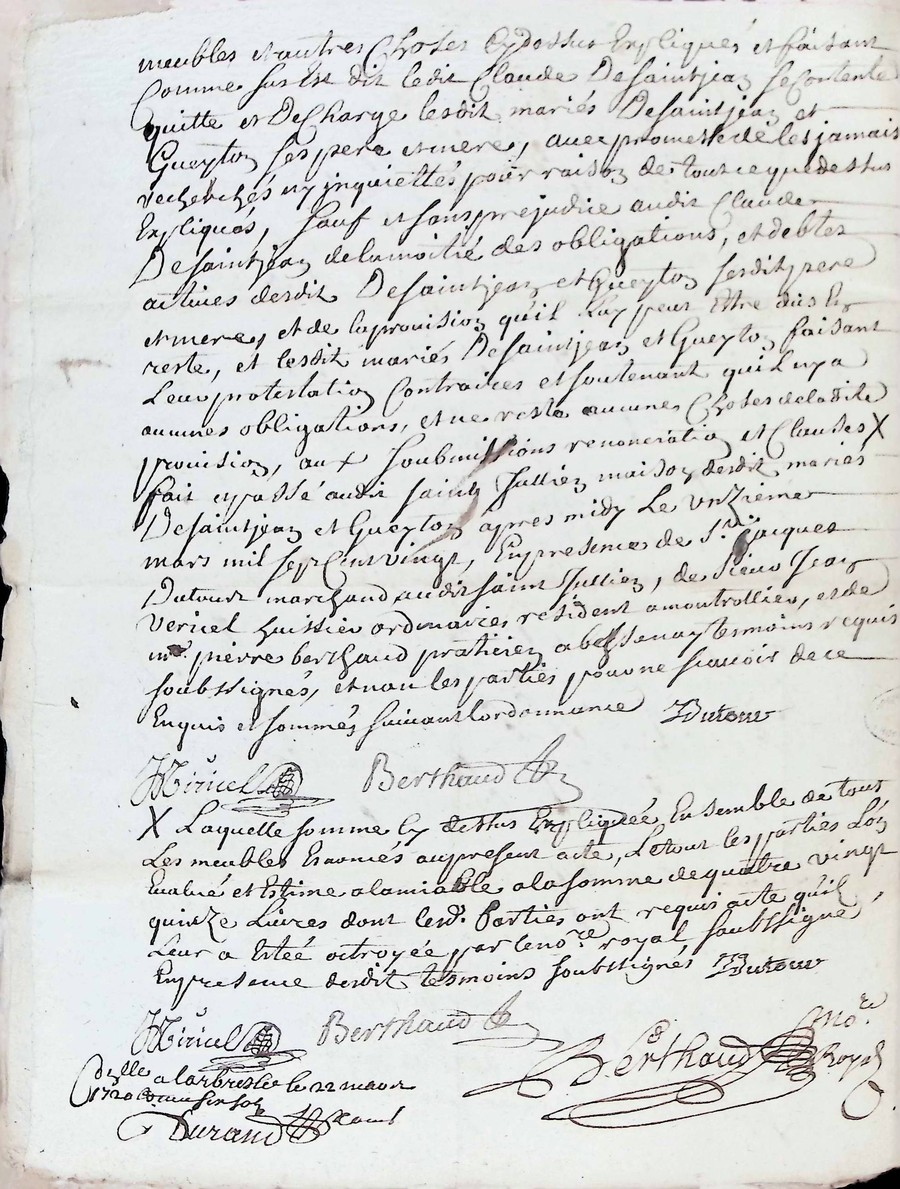 meubles et autres choses cydessus Expliqués et faisant
Comme sus Est dit ledit Claude Desaintjean se contente
quitte et Decharge lesdit mariés Desaintjean et
Gueyton ses pere et mere, avec promesse de les jamais
recherchés ny inquiettés pour raison de tout ce que dessus
Expliqués, sauf et sans prejudice audit Claude
Desaintjean de la moitié des obligations, et debtes
actives desdit Desaintjean et Gueyton sesdit pere
et mere, et de la provision qu'il luy peut Estre dus En
reste, et lesdit mariés Desaintjean et Gueyton faisant
Leur protestation Contraires et soutenant quil ny a
aucunes obligations, et ne reste aucunes choses de la dite
provision, aux soubmissions renonciation et Clauses X
fait et passé audit saint Jullien maison desdit mariés
Desaintjean et Gueyton apres midy Le unzieme
mars mil sept Cent vingt, En presence de Sr. Jacques
Dutour marchand audit Saint Jullien, de sieur Jean
Vericel huissier ordinaires resident a montrollier, et de
me. pierre berthaud praticien a bessenay tesmoins requis
soubssignés, et non les parties pour ne scavoir de ce
Enquis et sommés suivant lordonnance Dutour
Viricel Berthaud
X Laquelle somme Cy dessus Expliquée Ensemble de tous
Les meubles Enoncés au present acte, Le tout les parties Lon
Evalué et Estime a lamiable a la somme de quatre vingt
quinze Livres dont lesd. Parties ont requis acte quil
Leur a Estée octroyée par le nore royal soubssigné
En presence desdit tesmoins soubssignés Dutour
Viricel Berthaud
Berthaud nore. Royal
Cllé a larbresle le 22 mars
1720
Durand